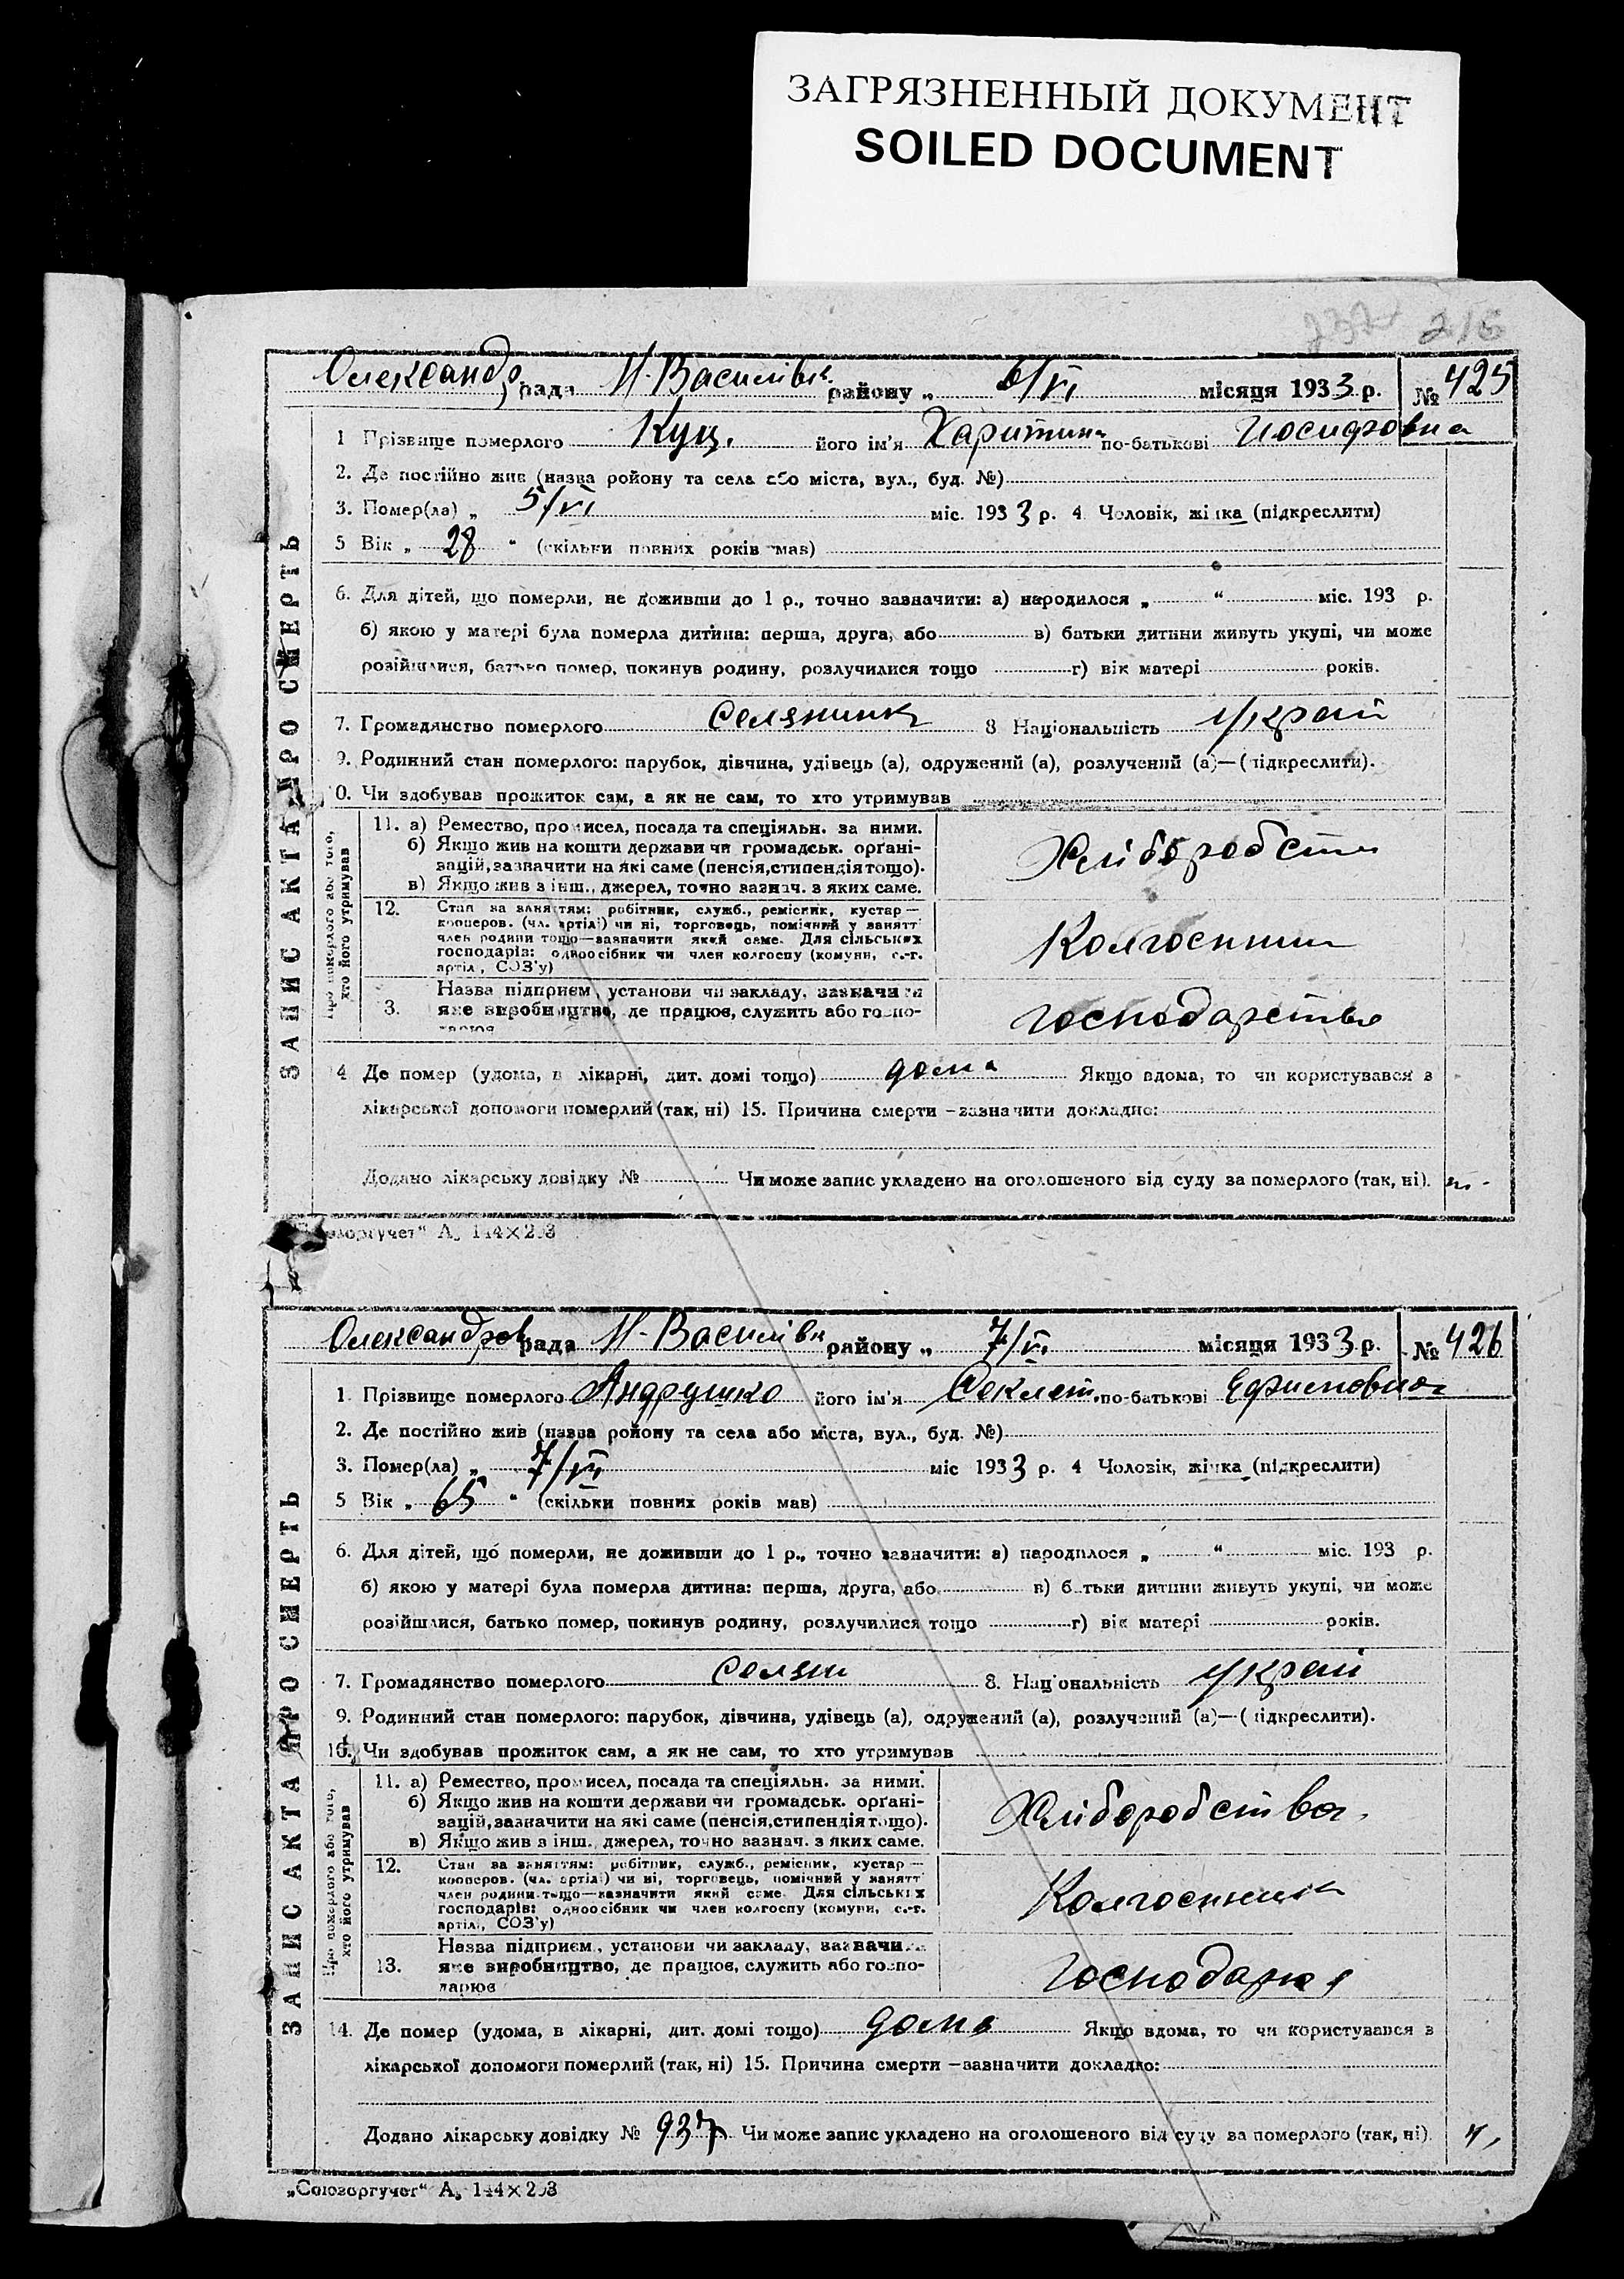 ЗАГРЯЗНЕННЫЙ ДОКУМЕНТ
SOILED DOCUMENT
237 216
Олександр рада Н-Василівк району „ 6/VI місяця 1933 р. № 425
ЗАПИС АКТА ПРО СМЕРТЬ
1 Прізвище померлого Куц. його ім'я Харитина по-батькові Иосифовна
2. Де постійно жив (назваройону та села або міста, вул., буд. №)
3. Помер(ла) „ 5/VI міс. 1933 р. 4 Чоловік, жінка (підкреслити)
5 Вік „ 28 “ (скільки повних років мав)
6. Для дітей, що померли, не доживши до 1 р., точно зазначити: а) народилося „ “ міс. 193 р.
б) якою у матері була померла дитина: перша, друга, або в) батьки дитини живуть укупі, чи може
розійшлися, батько помер, покинув родину, розлучилися тощо г) вік матері років.
7. Громадянство померлого Селянинк 8 Національність Украй
9. Родинний стан померлого: парубок, дівчина, удівець (а), одружений (а), розлучений (а)—(підкреслити).
0. Чи здобував прожиток сам, а як не сам, то хто утримував
Про померлого або того,
хто його утримував
11. а) Ремество, промисел, посада та спеціяльн. за ними.
б) Якщо жив на кошти держави чи громадськ. орґані-
зацій, зазначити на які саме (пенсія, стипендія тощо).
в) Якщо жив з інш., джерел, точно зазнач. з яких саме.
Хліборобств
12. Стан за заняттям: робітник, служб., ремісник, кустар —
кооперов. (чл. артілі) чи ні, торговець, помічний у занятт
член родини тощо—зазначити який саме. Для сільських
господарів: одноосібник чи член колгоспу (комуни, с.-г.
артіл., СОЗ'у)
Колгоспниц
3. Назва підприєм., установи чи закладу, зазначити
яке виробництво, де працює, служить або госпо-
дарює
господарство
4 Де помер (удома, в лікарні, дит. домі тощо) дома Якщо вдома, то чи користувався з
лікарської допомоги померлий (так, ні) 15. Причина смерти —зазначити докладно:
Додано лікарську довідку № Чи може запис укладено на оголошеного від суду за померлого (так, ні).
оюзоргучет“ А5 144×203
Олександров рада Н-Васиlівк району „ 7/VI місяця 1933 р. № 426
ЗАПИС АКТА ПРО СМЕРТЬ
1. Прізвище померлого Андрушко його ім'я Феклет по-батькові Ефимовна
2. Де постійно жив (назва ройону та села або міста, вул., буд. №)
3. Помер(ла) „ 7/VI міс 1933 р. 4 Чоловік, жінка (підкреслити)
5 Вік „ 65 “ (скільки повних років мав)
6. Для дітей, що померли, не доживши до 1 р., точно зазначити: а) народилося „ “ міс. 193 р.
б) якою у матері була померла дитина: перша, друга, або в) батьки дитини живуть укупі, чи може
розійшлися, батько помер, покинув родину, розлучилися тощо г) вік матері років.
7. Громадянство померлого Селян 8. Національність Украй
9. Родинний стан померлого: парубок, дівчина, удівець (а), одружений (а), розлучений (а)—(підкреслити).
10. Чи здобував прожиток сам, а як не сам, то хто утримував
Про померлого або того,
хто його утримував
11. а) Ремество, промисел, посада та спеціяльн. за ними.
б) Якщо жив на кошти держави чи громадськ. орґані-
зацій, зазначити на які саме (пенсія, стипендія тощо).
в) Якщо жив з інш., джерел, точно зазнач. з яких саме.
Хліборобства
12. Стан за заняттям: робітник, служб., ремісник, кустар —
кооперов. (чл. артілі) чи ні, торговець, помічний у занятт
член родини тощо—зазначити який саме. Для сільських
господарів: одноосібник чи член колгоспу (комуни, с.-г.
артілі, СОЗ'у)
Колгоспника
13. Назва підприєм., установи чи закладу, зазначи
яке виробництво, де працює, служить або госпо-
дарює
господарює
14. Де помер (удома, в лікарні, дит. домі тощо) дома Якщо вдома, то чи користувався з
лікарської допомоги померлий (так, ні) 15. Причина смерти —зазначити докладно:
Додано лікарську довідку № 937 Чи може запис укладено на оголошеного від суду за померлого (так, ні).
„Союзоргучет“ А5 144×203